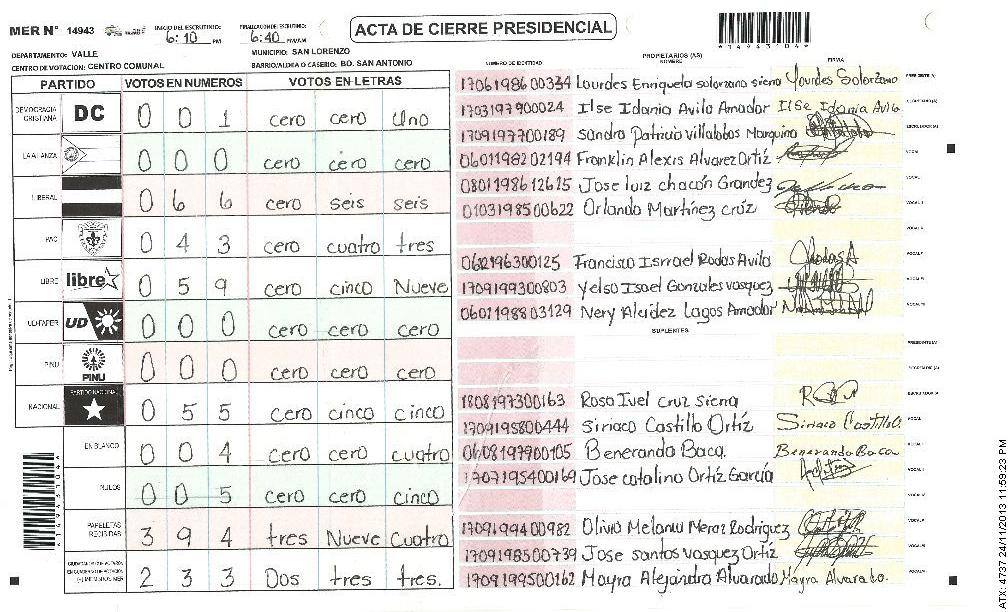 MER Nº 14943 INICIO DEL ESCRUTINIO: 6:10 PM FINALIZACION DEL ESCRUTINIO: 6:40 PM/AM
ACTA DE CIERRE PRESIDENCIAL
*1494310 4*
DEPARTAMENTO: VALLE MUNICIPIO: SAN LORENZO
CENTRO DE VOTACION: CENTRO COMUNAL BARRIO/ALDEA O CASERIO: BO. SAN ANTONIO
PARTIDO VOTOS EN NUMEROS VOTOS EN LETRAS
DEMOCRACIA CRISTIANA DC 0 0 1 cero cero uno
LA ALIANZA 0 0 0 cero cero cero
LIBERAL 0 6 6 cero seis seis
PAC 0 4 3 cero cuatro tres
LIBRE libre 0 5 9 cero cinco Nueve
UD-FAPER UD 0 0 0 cero cero cero
PINU PINU 0 0 0 cero cero cero
NACIONAL PARTIDO NACIONAL 0 5 5 cero cinco cinco
EN BLANCO 0 0 4 cero cero cuatro
NULOS 0 0 5 cero cero cinco
PAPELETAS RECIBIDAS 3 9 4 tres Nueve Cuatro
2 3 3 Dos tres tres.
NUMERO DE IDENTIDAD PROPIETARIOS (AS) NOMBRE FIRMA
1706198600334 Lourdes Enriqueta solorzano siena Lourdes Solorzano PRESIDENTE (A)
1703197900024 Ilse Idania Avila Amador Ilse Idania Avila SECRETARIO (A)
1709197700189 Sandra Patricia villalobos Manquina ESCRUTADOR (A)
0601198202194 Franklin Alexis Alvarez Ortíz VOCAL I
0801198612615 Jose luiz chacón Grandez VOCAL
0103198500622 Orlando Martínez crúz VOCAL II
Francisco Ismael Rodas Avila VOCAL
1709199300803 Yelso Isael Gonzales vasquez VOCAL
0601198803129 Nery Alcidez Lagos Amador VOCAL
SUPLENTES
PRESIDENTE (A)
SECRETARIO (A)
1808197300163 Rosa Ivel cruz siena ESCRUTADOR (A)
1709195800444 Siriaco Castillo Ortíz Siriaco Castillo. VOCAL
0608197900105 Benerando Baca. Benerando Baca VOCAL
1707195400169 Jose catalino Ortíz García VOCAL
1709199400982 Olivia Melania Meraz Rodriguez VOCAL
1709198500739 Jose santos vasquez Ortiz VOCAL
1709199500162 Mayra Alejandra Alvarado Mayra Alvarado. VOCAL
ATX: 4737 24/11/2013 11:59:23 PM